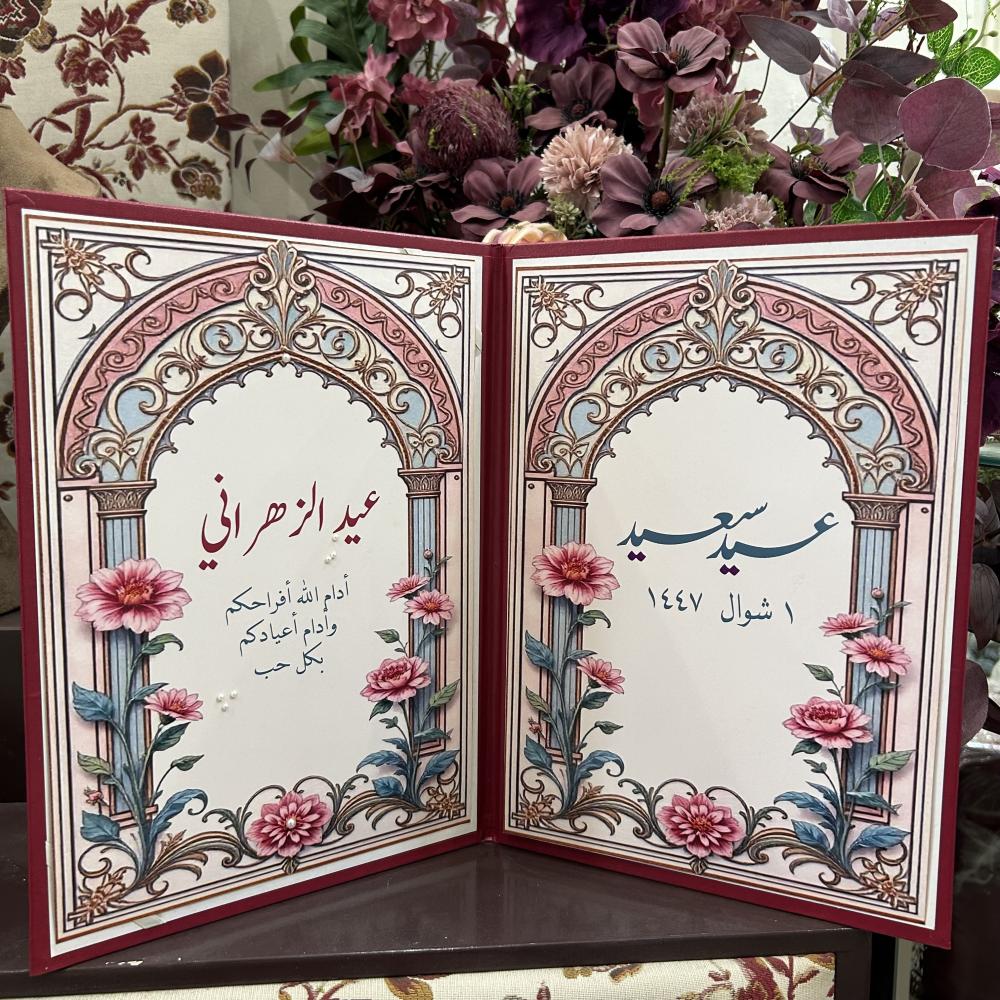 عيد سعيد
١ شوال ١٤٤٧
عيد الزهراني
أدام الله أفراحكم
وأدام أعيادكم
بكل حب